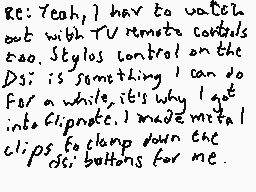 Re: Yeah, I hav to watch
out with TV remote controls
too. Stylos control on the
Dsi is something I can do
for a while, it's why I got
into flipnote. I made metal
clips to clamp down the
dsi buttons for me.